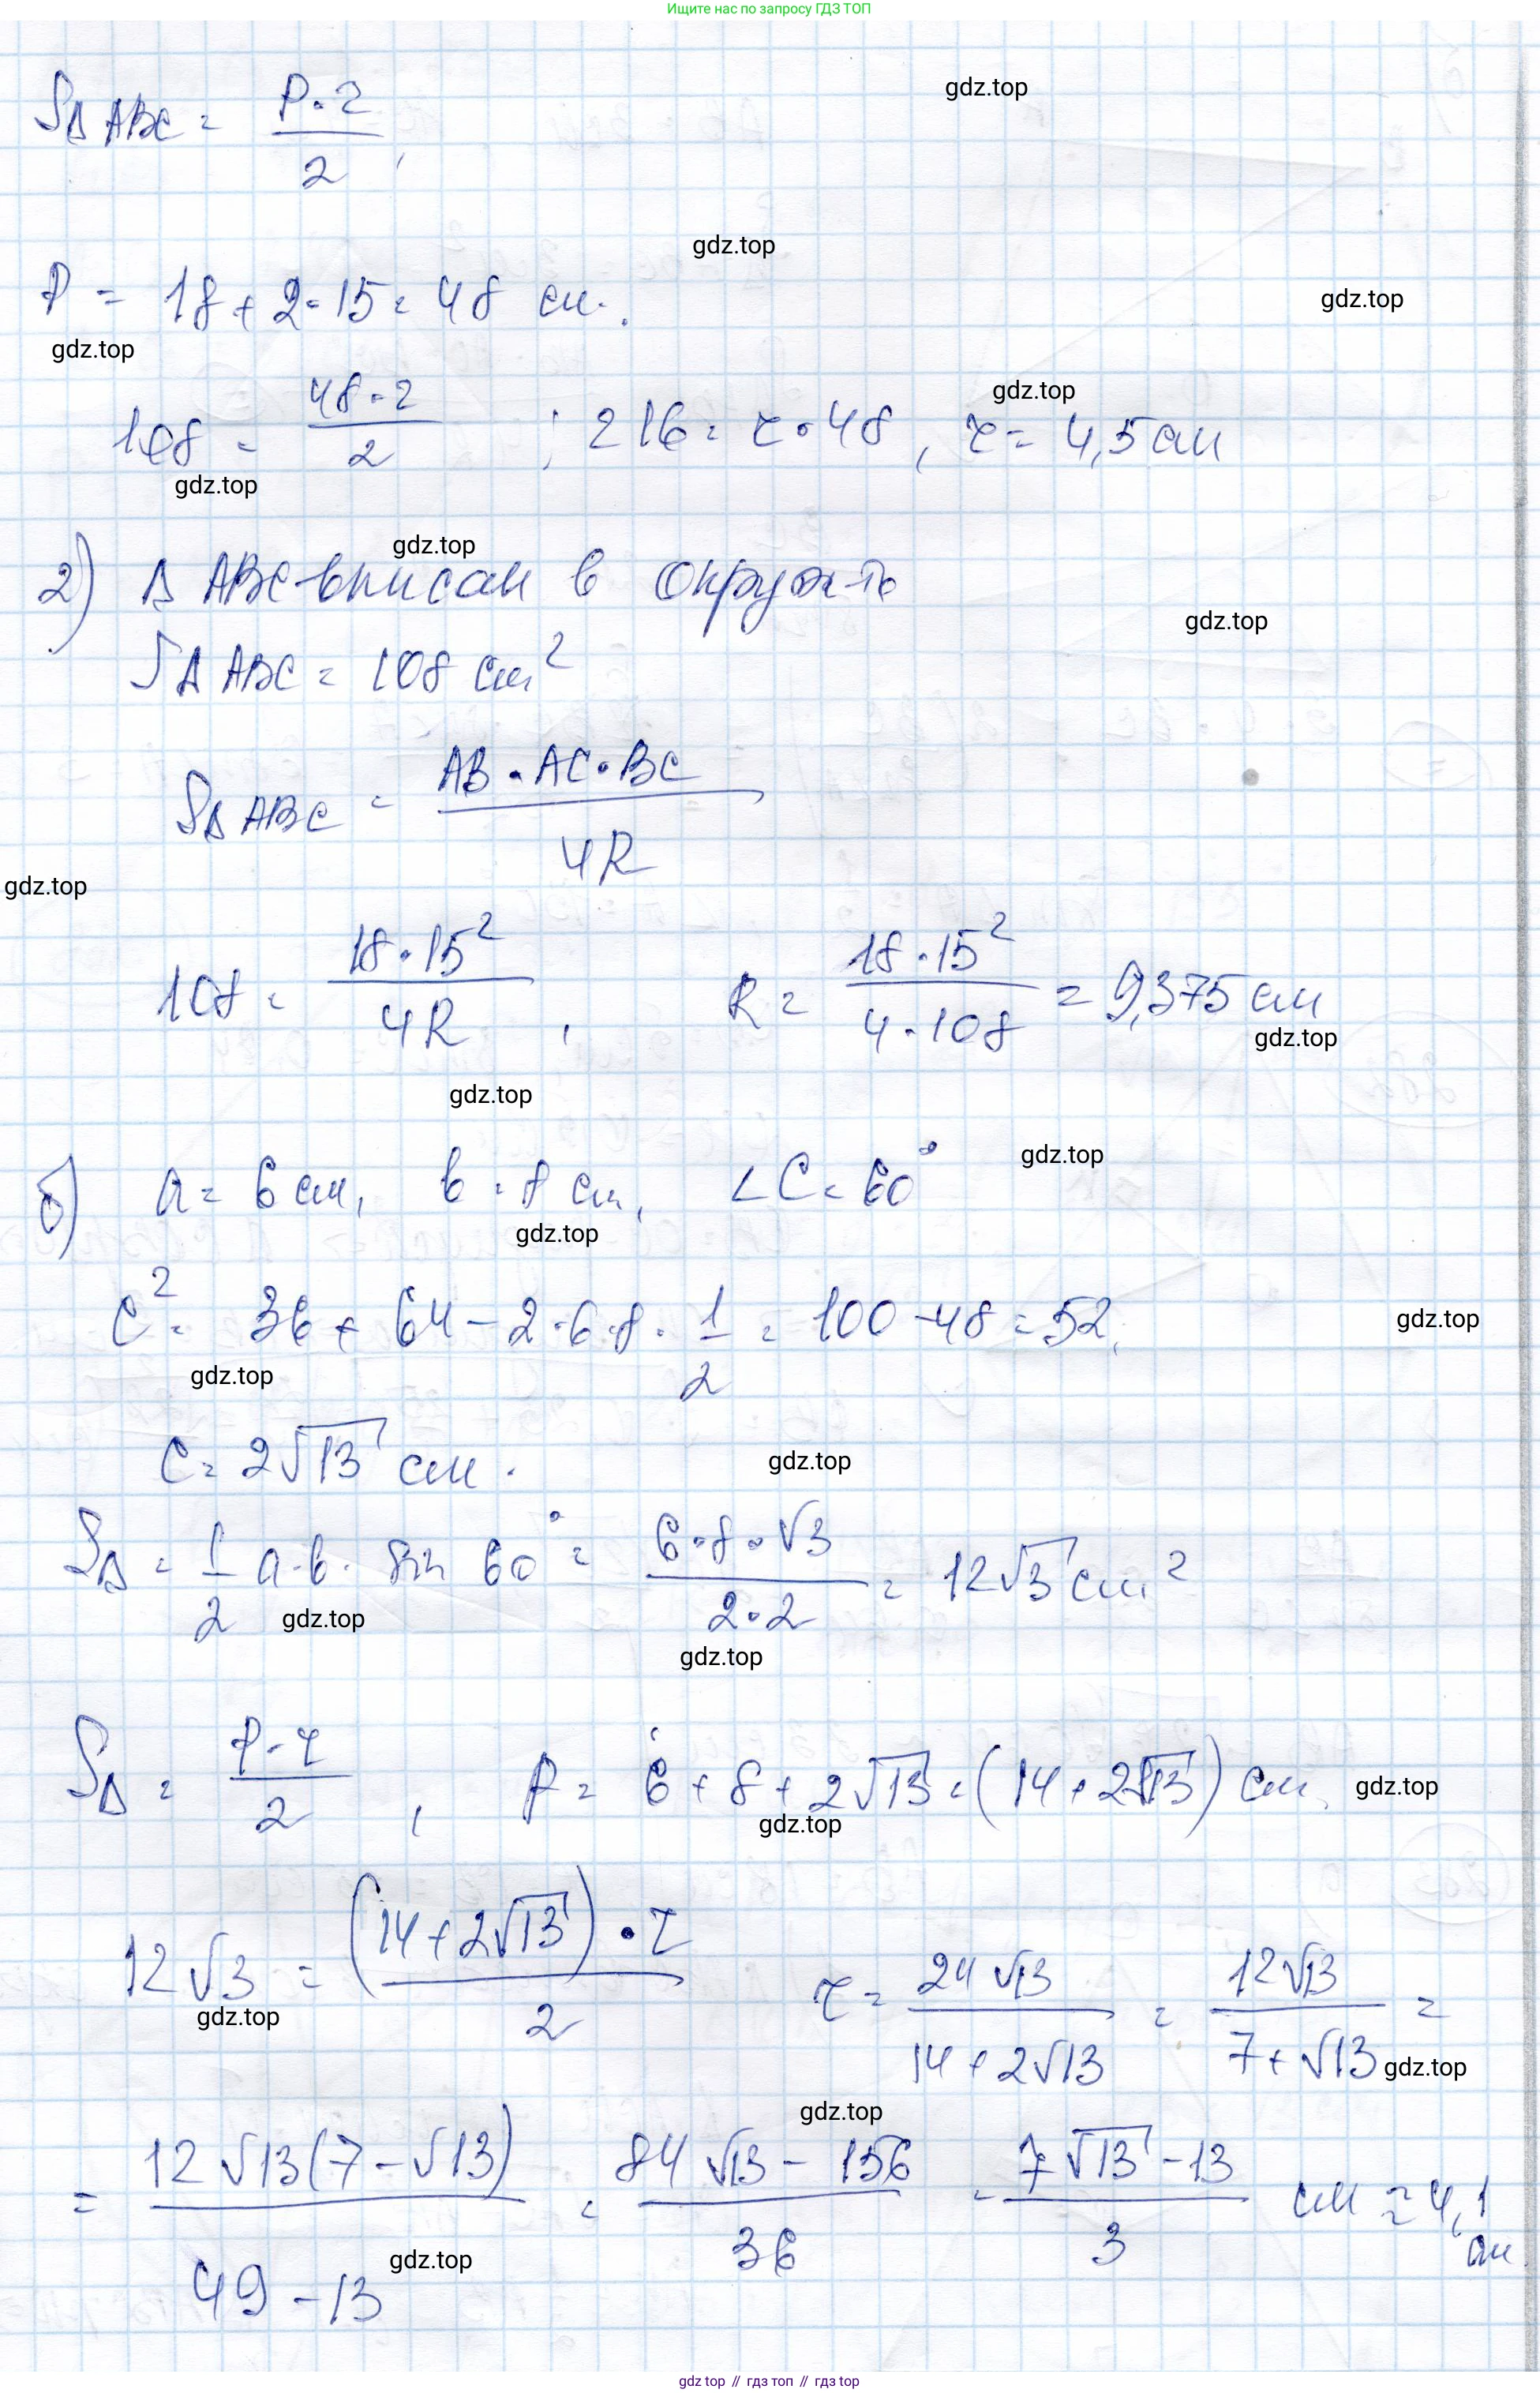 Ищите нас по запросу ГДЗ ТОП
gdz.top
S△ABC = P·r/2,
gdz.top
P = 18 + 2·15 = 48 см.
gdz.top
gdz.top
gdz.top
108 = 48·r/2 ; 216 = r·48, r = 4,5 см
gdz.top
gdz.top
2) △ ABC-вписан в окруж-ть
gdz.top
S△ ABC = 108 см²
S△ ABC = AB·AC·BC/4R
gdz.top
108 = 18·15²/4R, R = 18·15²/4·108 = 9,375 см
gdz.top
gdz.top
gdz.top
б) a = 6 см, b = 8 см, ∠C = 60°
gdz.top
c² = 36 + 64 - 2·6·8·1/2 = 100 - 48 = 52,
gdz.top
gdz.top
c = 2√13 см.
gdz.top
S△ = 1/2 a·b· sin 60° = 6·8·√3/2·2 = 12√3 см²
gdz.top
gdz.top
S△ = P·r/2, P = 6 + 8 + 2√13 = (14 + 2√13) см,
gdz.top
gdz.top
12√3 = (14 + 2√13)·r/2 r = 24√13/14 + 2√13 = 12√13/7 + √13 =
gdz.top
gdz.top
gdz.top
= 12√13(7 - √13)/49 - 13 = 84√13 - 156/36 = 7√13 - 13/3 см ≈ 4,1 см.
gdz.top
gdz.top // гдз топ // гдз top